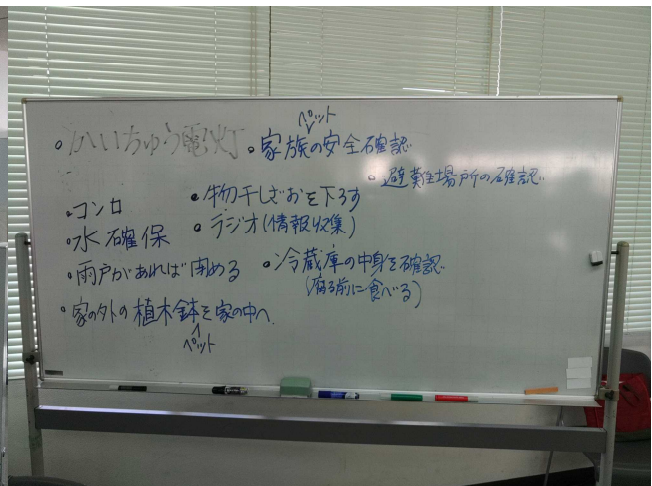 ・かいちゅう電灯
ペット
・家族の安全確認
・避難場所の確認
・コンロ
・物干しざおを下ろす
・水確保
・ラジオ(情報収集)
・雨戸があれば閉める
・冷蔵庫の中身を確認
(腐る前に食べる)
・家の外の植木鉢を家の中へ
ペット